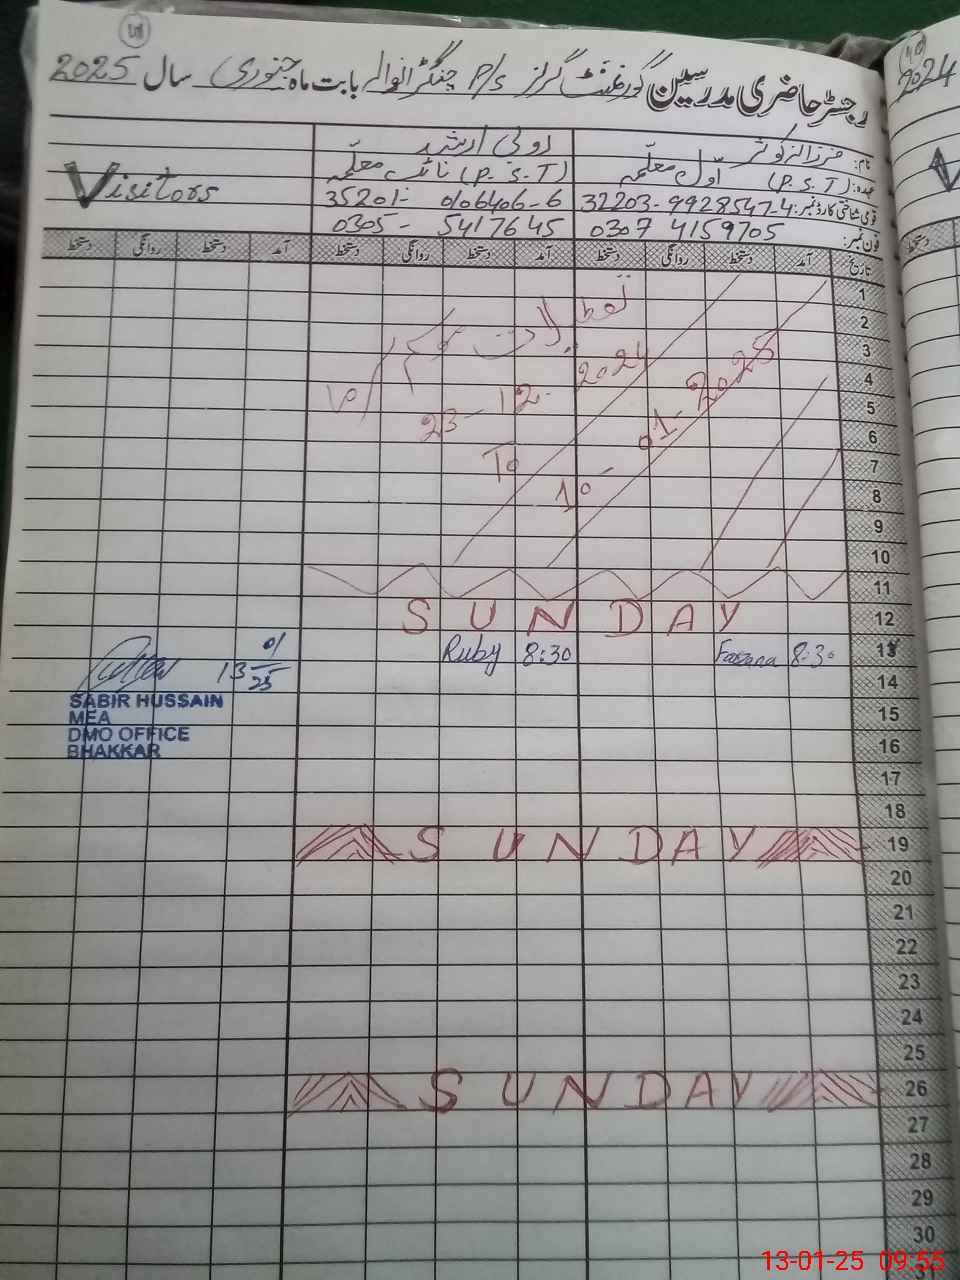 رجسٹر حاضری مدرسین گورنمنٹ گرلز P/S چنگڑانوالہ بابت ماہ جنوری سال 2025
2024
نام: فرزانہ کوثر روبی ارشد
عہدہ: (P.S.T) اوّل معلّمہ (P.S.T) نائب معلّمہ Visitors
قومی شناختی کارڈ نمبر: 32203-9928547-4 35201-0106406-6
فون نمبر: 0307 4159705 0305-5417645
تاریخ آمد دستخط روانگی دستخط آمد دستخط روانگی دستخط آمد دستخط روانگی دستخط
1
2
تعطیلات موسم سرما
3
23-12-2024
4
To
5
10-01-2025
6
7
8
9
10
11
12 SUNDAY
13 8:30 Farzana 8:30 Ruby 13 01/25
14
SABIR HUSSAIN
MEA
DMO OFFICE
BHAKKAR
15
16
17
18
19 SUNDAY
20
21
22
23
24
25
26 SUNDAY
27
28
29
30
13-01-25 09:55